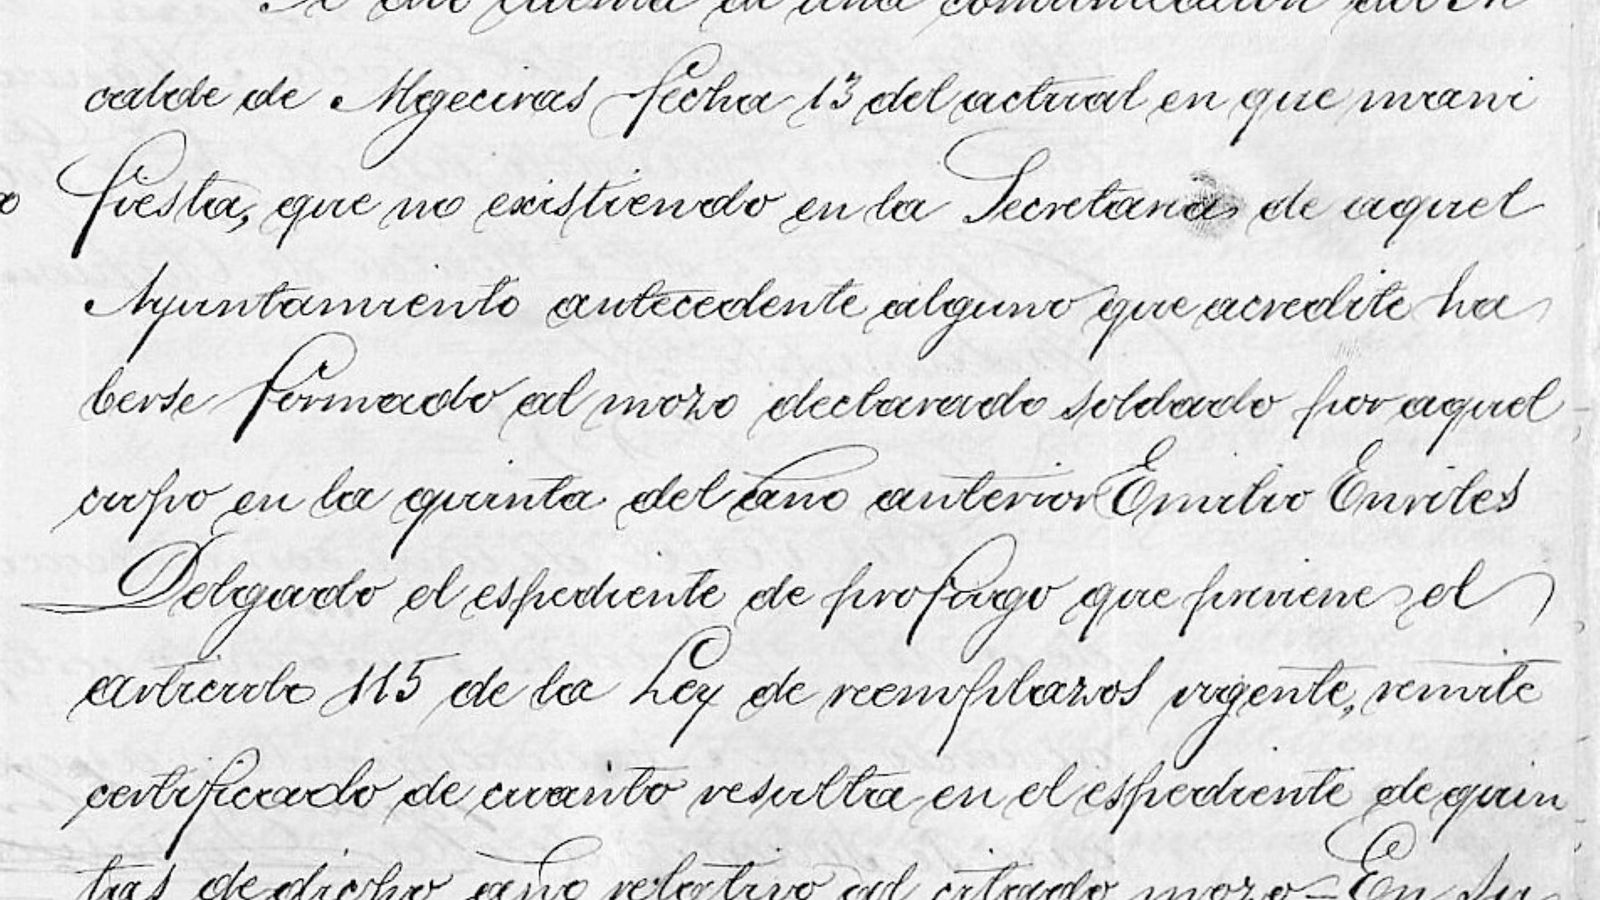 Se dio cuenta de una comunicacion del Al
calde de Algeciras fecha 13 del actual en que mani
fiesta, que no existiendo en la Secretaria de aquel
Ayuntamiento antecedente alguno que acredite ha
berse formado al mozo declarado soldado por aquel
cupo en la quinta del año anterior Emilio Enriles
Delgado el espediente de profugo que previene el
articulo 115 de la Ley de reemplazos vigente, remite
certificado de cuanto resulta en el espediente de quin
tas de dicho año relativo al citado mozo = En su